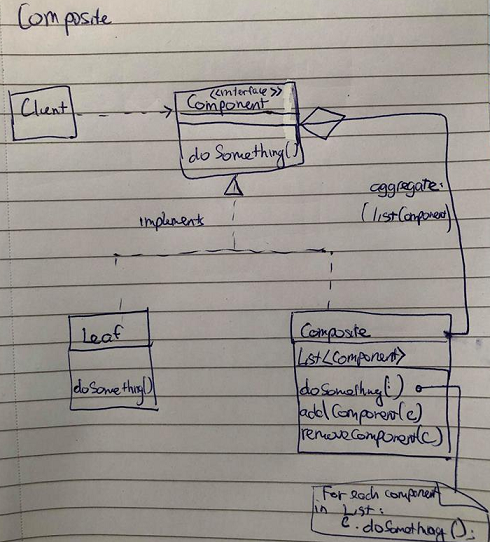 Composite
Client
<<interface>>
Component
doSomething()
implements
aggregate:
(listComponent)
Leaf
doSomething()
Composite
List<Component>
doSomething(;)
addComponent(c)
removeComponent(C)
For each component
in List:
c.doSomething();